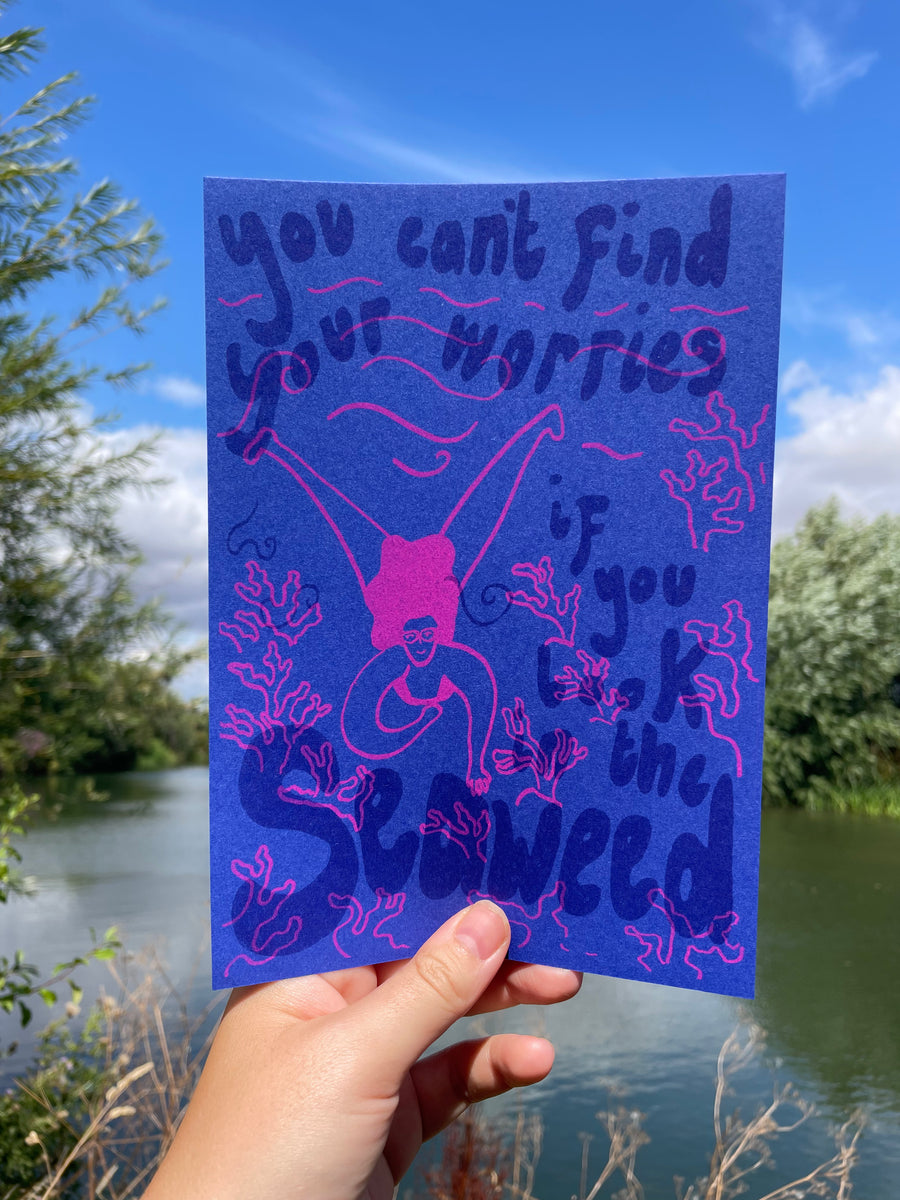 you can't find
your worries
if
you
look
the
Seaweed